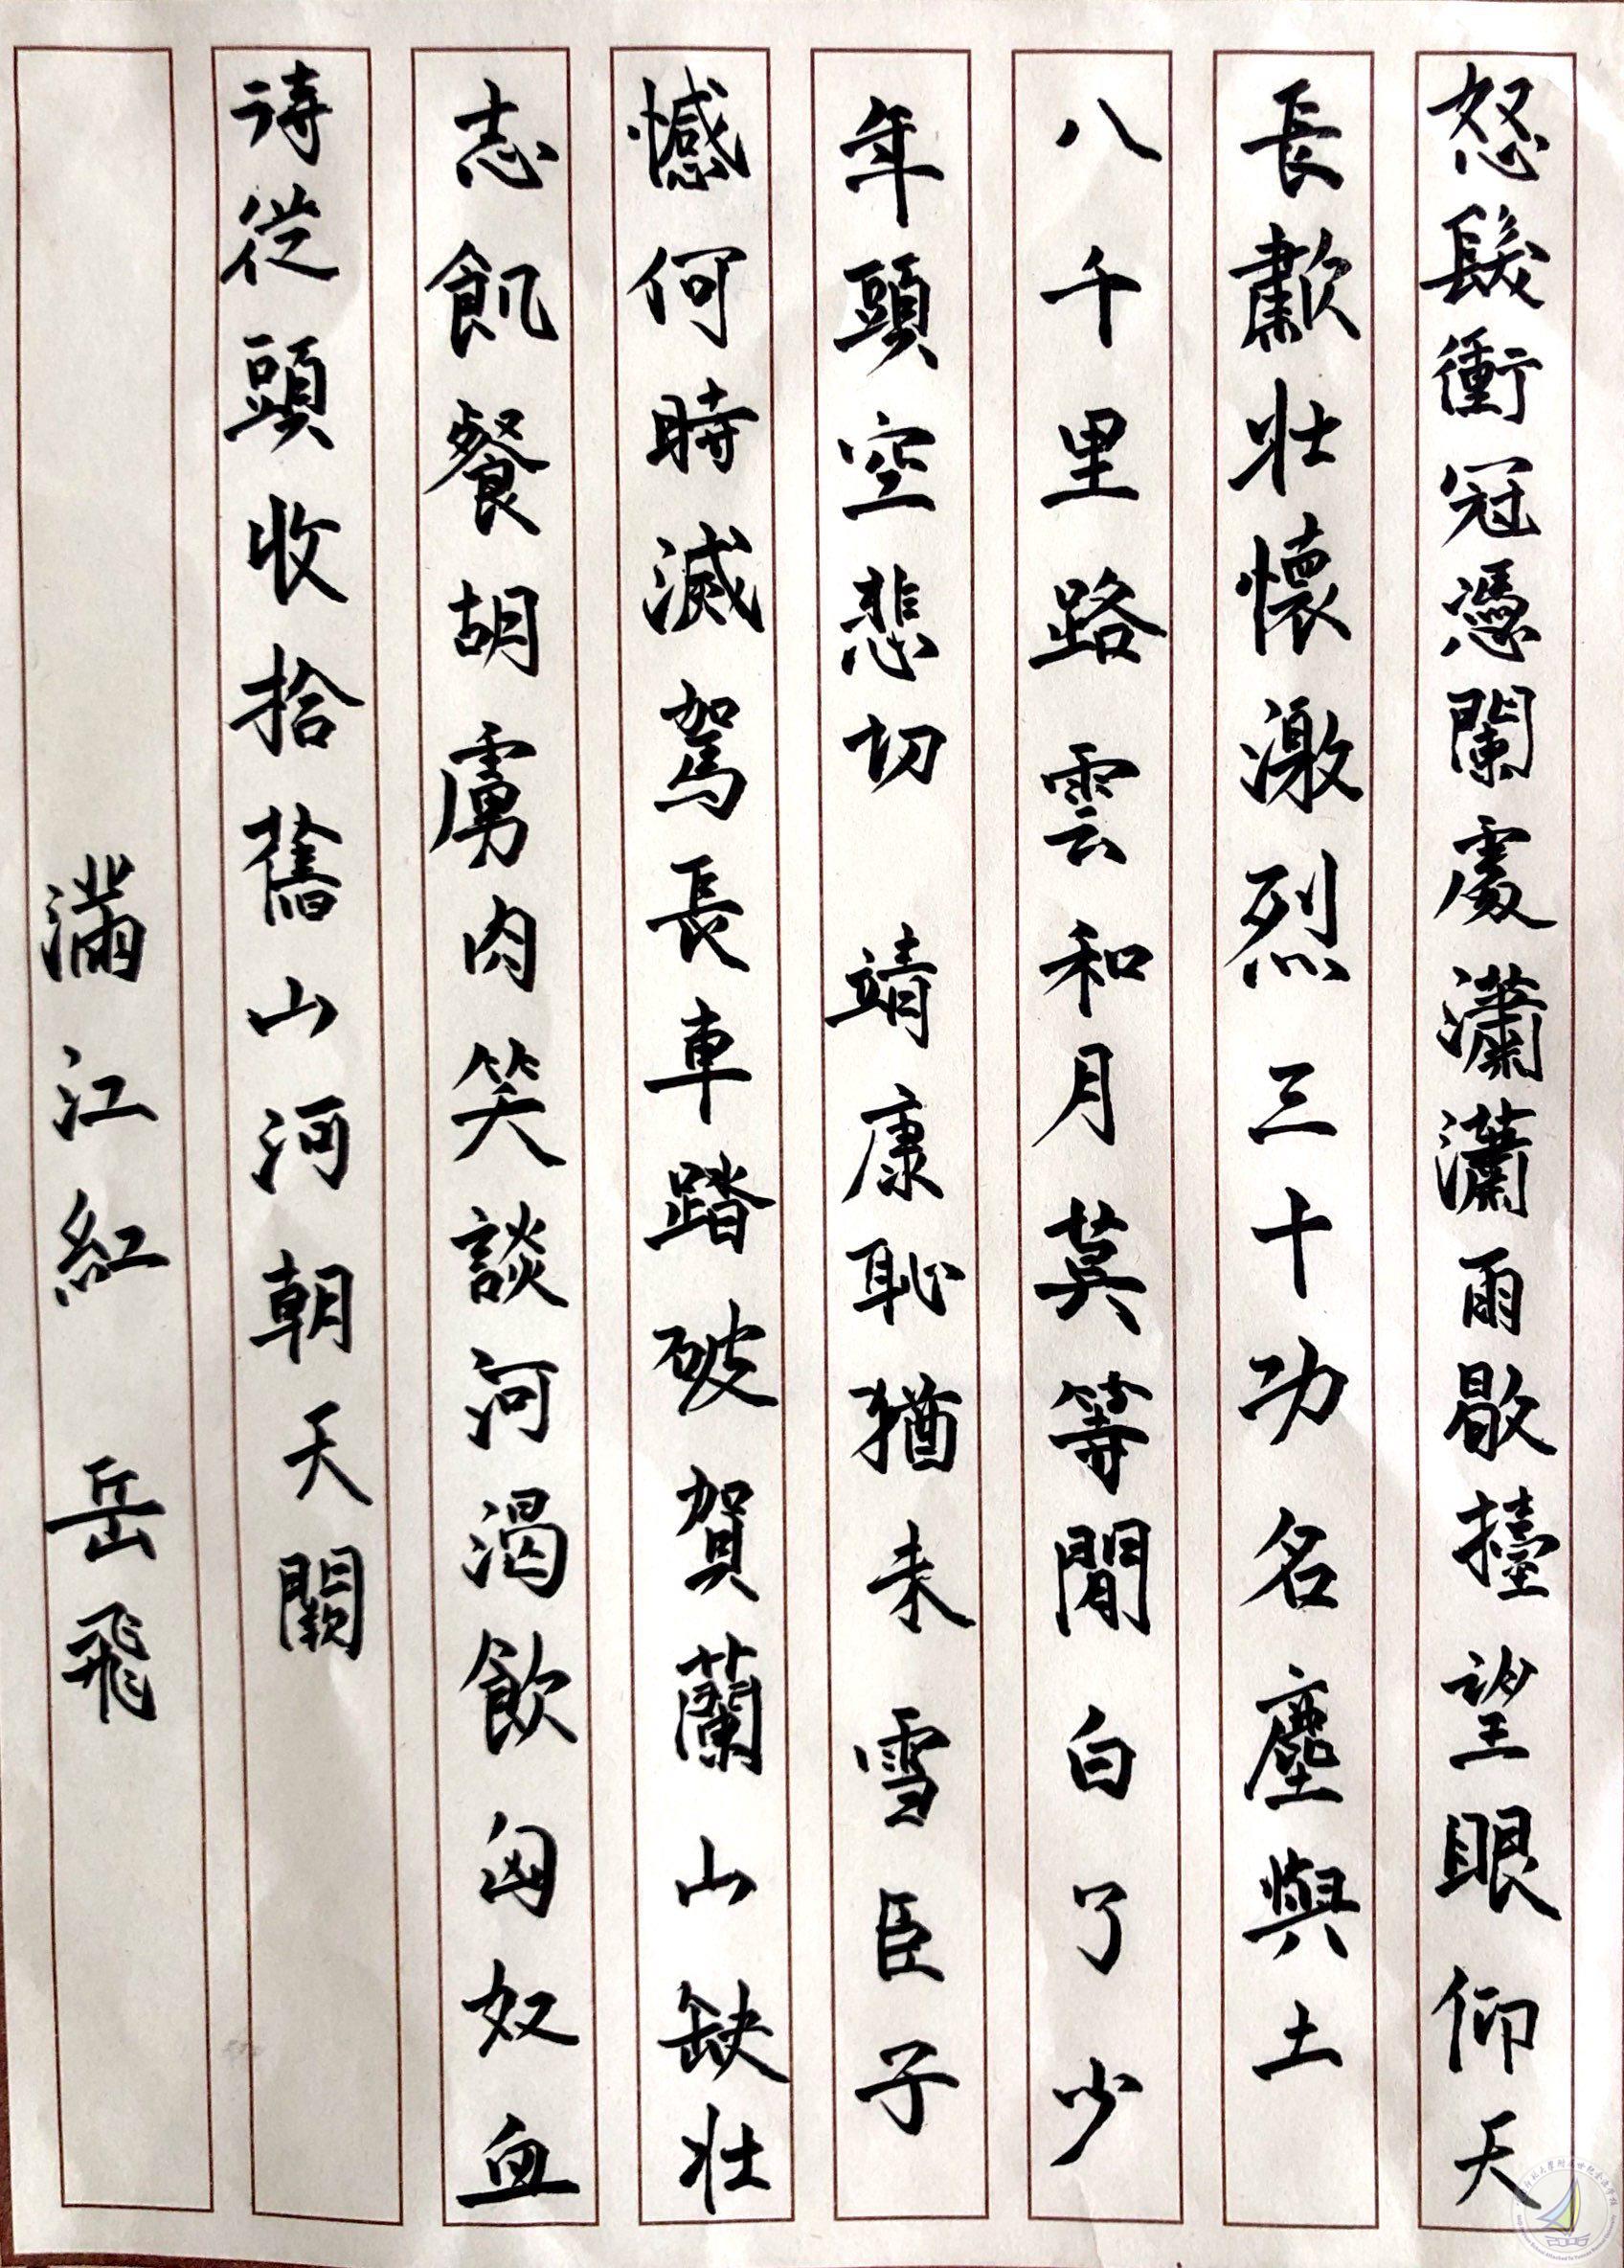 怒髮衝冠憑闌處瀟瀟雨歇擡望眼仰天
長歗壯懷激烈三十功名塵與土
八千里路雲和月莫等閒白了少
年頭空悲切 靖康恥猶未雪臣子
憾何時滅駕長車踏破賀蘭山缺壯
志飢餐胡虜肉笑談河渴飲匈奴血
待從頭收拾舊山河朝天闕
滿江紅 岳飛